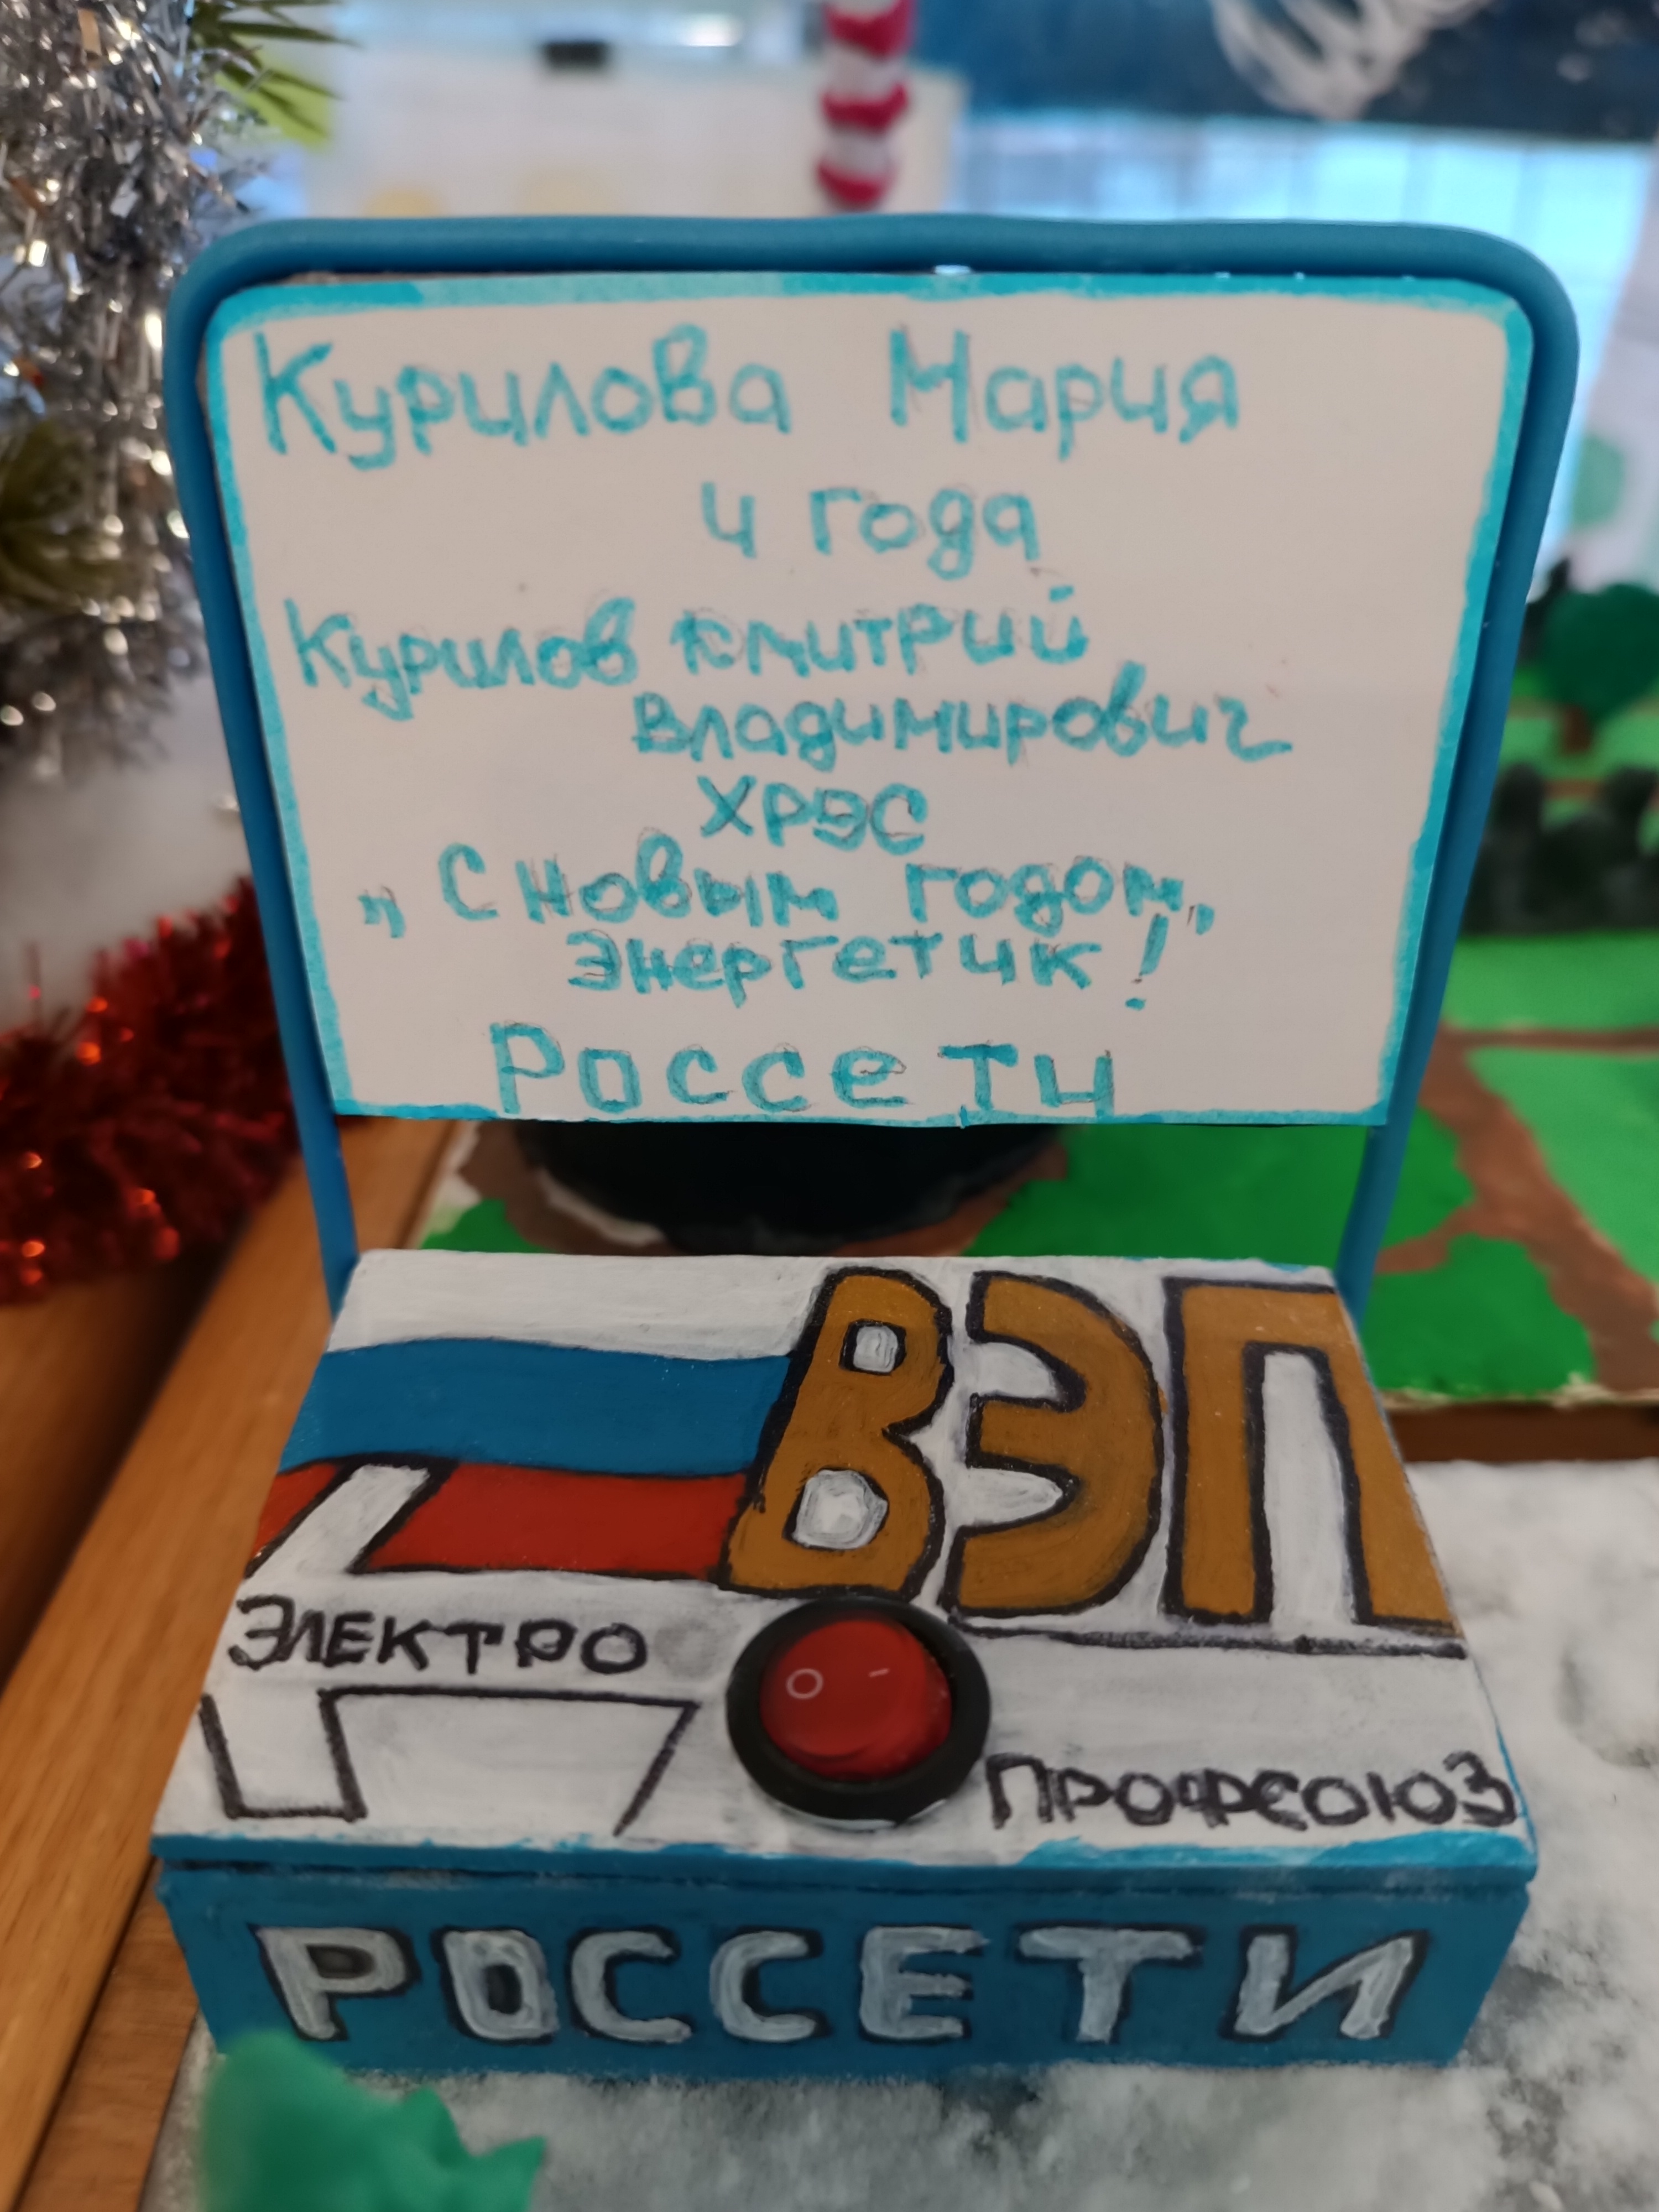 Курилова Мария
4 года
Курилов Дмитрий
Владимирович
ХРЭС
„С Новым годом,
Энергетик!"
Россети
ВЭП
ЭЛЕКТРО
ПРОФСОЮЗ
РОССЕТИ